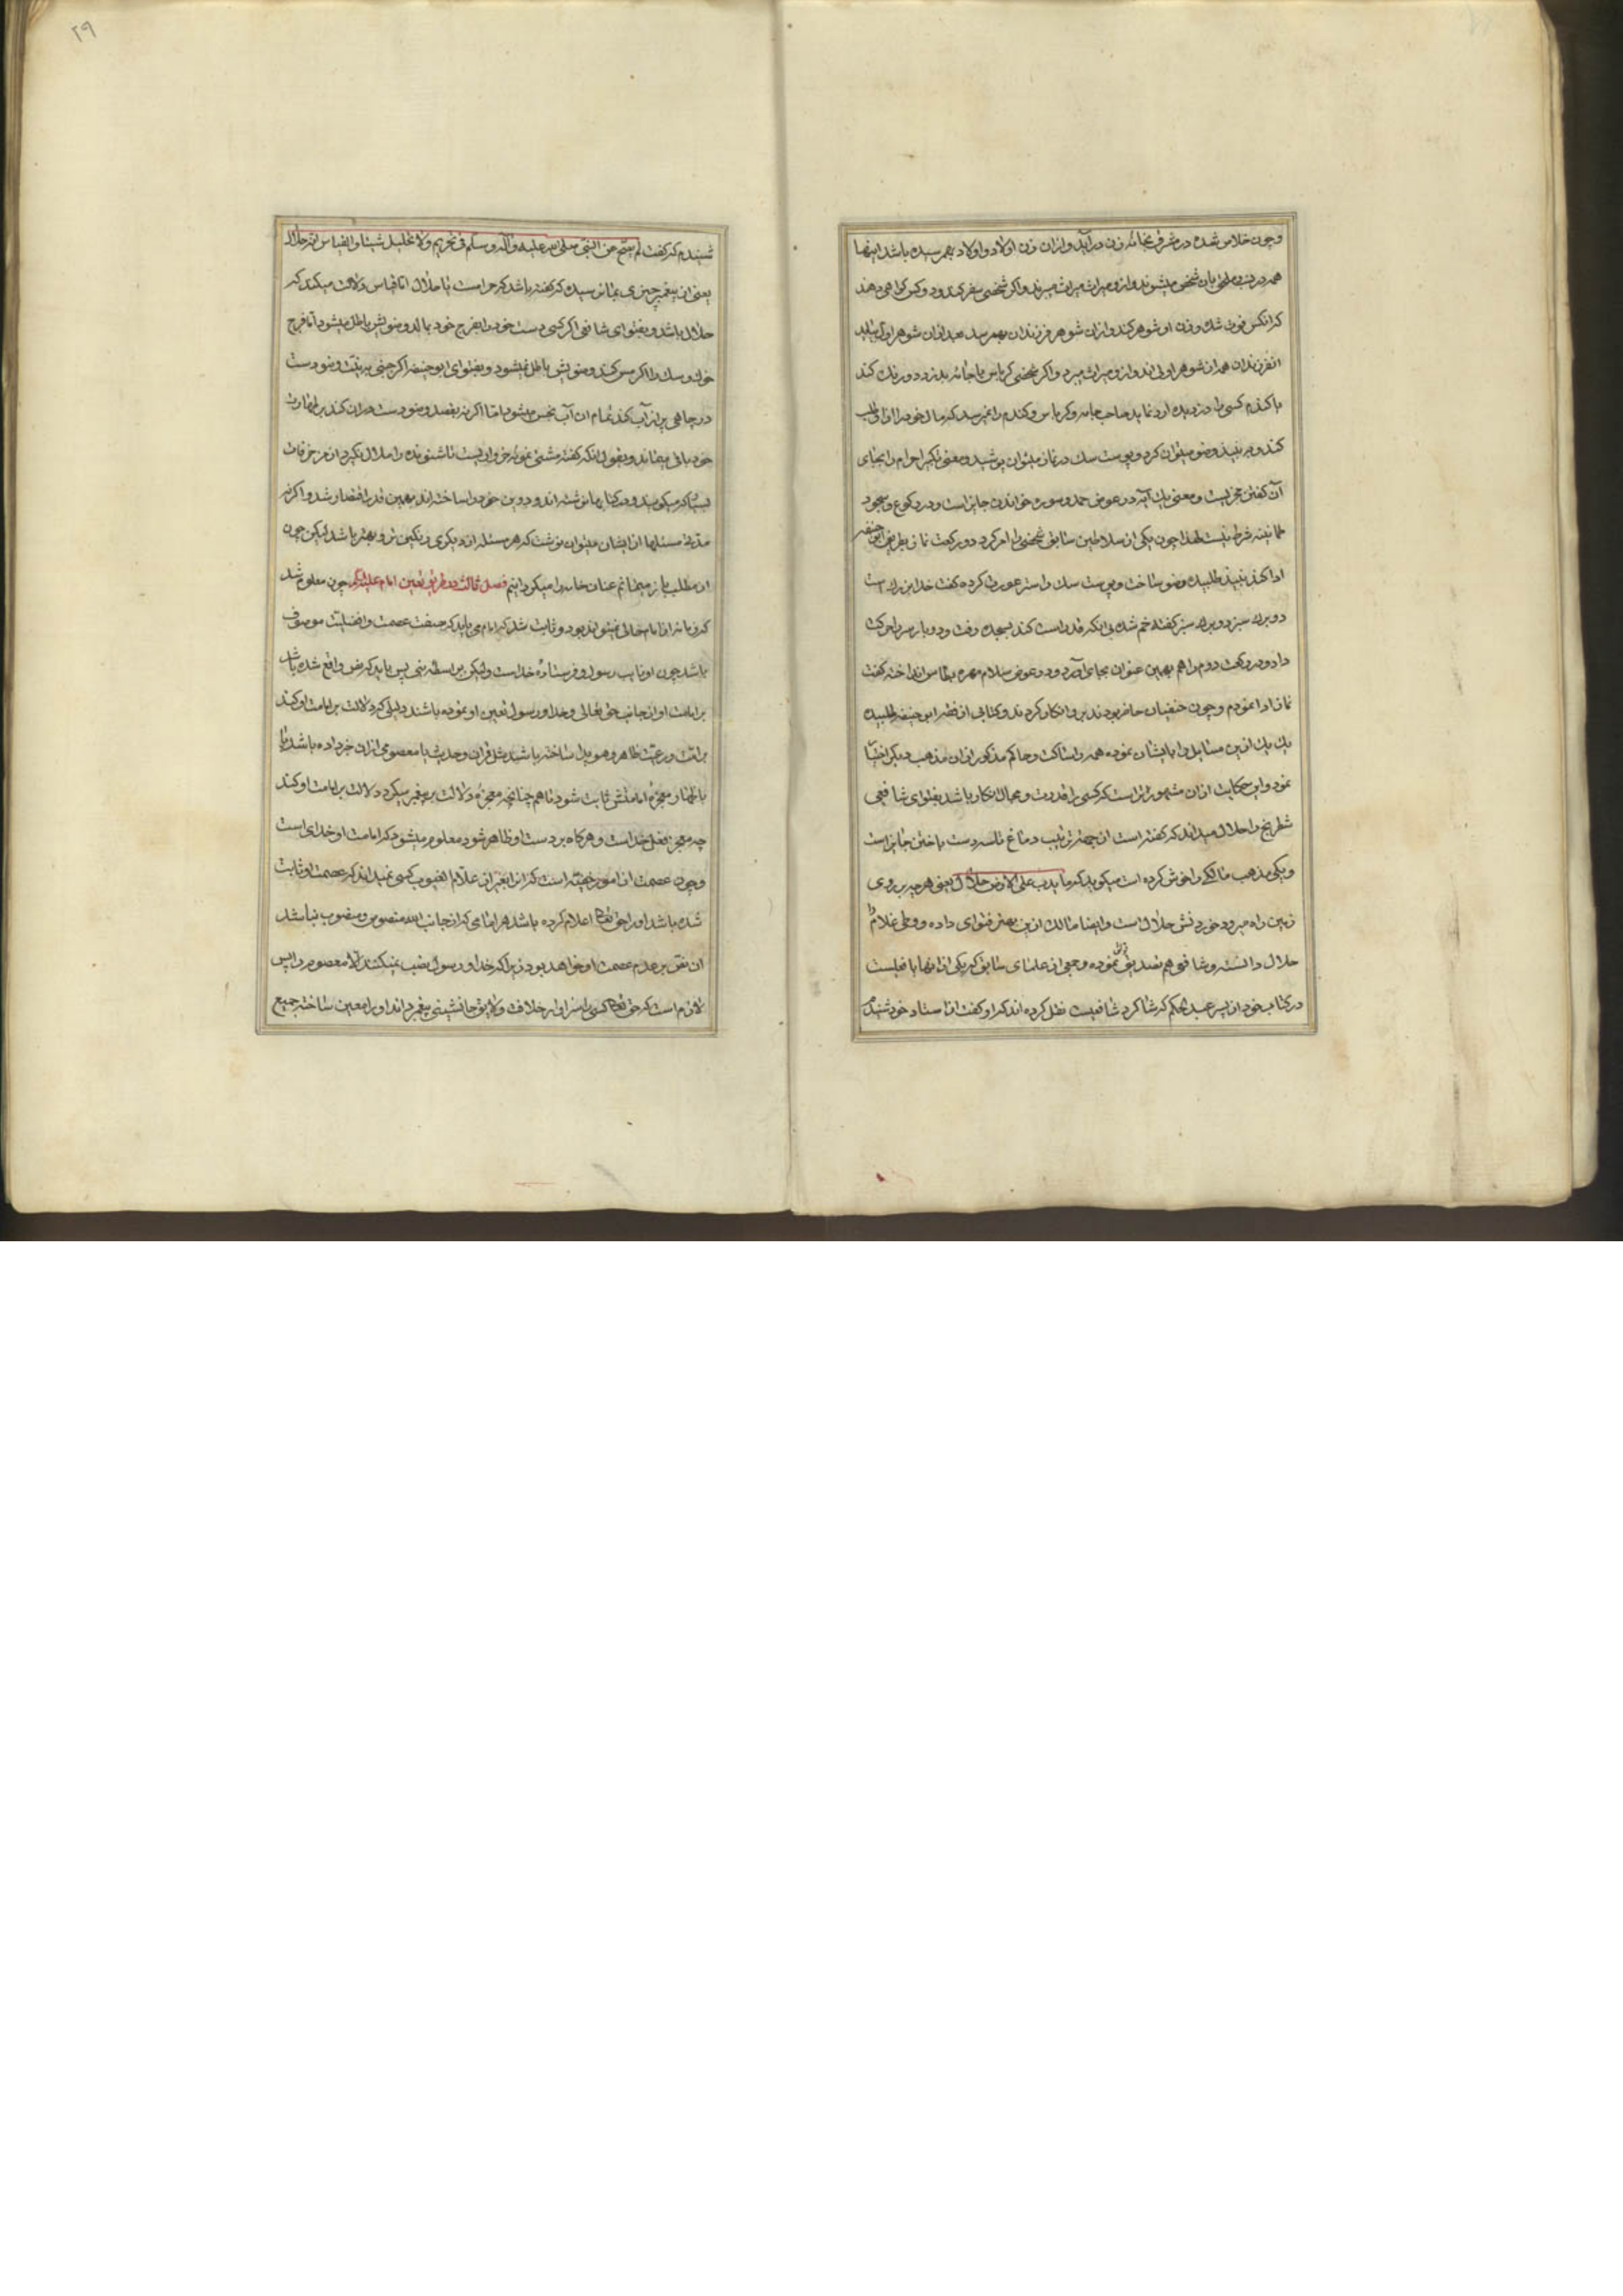 وچون خلاص شده در مشرق بخانه زن درآید و ازان زن اولاد و اولاد بهم رسیده باشد اینها
همه در نسب ملحق بان شخص میشوند و ازو میراث میبرند و اکر شخصی سفری رود و کس کواهی دهند
که انکس فوت شده و زن او شوهر کند و ازان شوهر فرزندان بهم رسد بعد ازان شوهر اول بیاید
انفرزندان همه ازان شوهر اولی اند و ازو میراث میبرد و اکر شخصی کرباس یا جامه بدزدد و رنك کند
یا کندم کسی را دزدیده ارد نماید صاحب جامه و کرباس و کندم را نمیرسد که مال خود را ازو طلب
کند و به نبیذ وضو میتوان کرد و پوست سك در نماز میتوان پوشید و معنی تکبیر احرام را بجای
آن کفتن مجزیست و معنی یك آیه در عوض حمد و سوره خواندن جایز است و در رکوع و سجود
طمانینه شرط نیست لهذا چون یکی از سلاطین سابق شخصی را امر کرد دو رکعت نماز بطریق ابی حنیفه
ادا کند نبیذ طلبیده وضو ساخت و پوست سك را ستر عورت کرده کفت خدا بزرك است
دو برك سبز دو برك سبز کفته خم شده بی انکه قد راست کند بسجده رفت و دو بار سر را حرکت
داد و در رکعت دوم را هم بهمین عنوان بجای آورد و در عوض سلام مهره انداخته کفت
نماز ادا نمودم و چون حنفیان حاضر بودند برو انکار کردند و کتابی از فقه ابی حنیفه طلبیده
یك یك ازین مسایل را بایشان نموده همه را ساکت و حاکم مذکور ازان مذهب دیکر اختیار
نمود و این حکایت ازان مشهورتر است که کسی را قدرت و مجال انکار باشد بفتوای شافعی
شطرنج را حلال میداند که کفته است از جهة ترتیب دماغ تاسه دست باختن جایز است
و یکی مذهب مالکی را خوش کرده است میکوید که ما یدب علی الارض حلال یعنی هر چه بر روی
زمین راه میرود خوردنش حلال است و ایضا مالك ازین بهتر فتوای داده و وطی غلام را
حلال دانسته و شافعی هم تصدیق نموده و جمعی از علمای سابق که یکی از انها یافعیست
در کتاب خود از پسر عبد الحکم که شاکرد شافعیست نقل کرده اند که او کفت از استاد خود شنیدم
۲۹
شنیدم که کفت لم یصح عن النبی صلی الله علیه وآله وسلم فی تحریم ولا تحلیل شیئا والقیاس انه حلال
یعنی از پیغمبر چیزی بما نرسیده که کفته باشد که حرامست یا حلال اما قیاس دلالت میکند که
حلال باشد و بفتوای شافعی اکر کسی دست خود را بفرج خود بمالد وضویش باطل میشود اما فرج
خوك و سك را اکر مس کند وضویش باطل نمیشود و بفتوای ابوحنیفه اکر جنبی به نیت وضو دست
در چاهی پر از آب کند تمام ان آب نجس میشود اما اکر نه بقصد وضو دست دران کند بر طهارت
خود باقی میماند و بقول انکه کفته مشتی نمونه خرواریست تا شنونده را ملال نکیرد از مزخرفات
بسیار که میکویند و در کتابها نوشته اند و دین خود را ساخته اند بهمین قدر اقتصار شد و اکر نه
مدتی مسئلها از ایشان میتوان نوشت که هر مسئله از دیکری رنکین تر و بهتر باشد لیکن چون
از مطلب باز میمانم عنان خامه را میکردانیم فصل ثالث در طریق تعیین امام علیه السلام چون معلوم شد
که زمانه از امام خالی نمیتواند بود و ثابت شد که امام می باید که صفت عصمت و افضلیت موصوف
باشد چون او نایب رسول و فرستاده خداست ولیکن بواسطه نبی پس باید که نص واقع شده باشد
بر امامت او از جانب حق تعالی و خدا و رسول تعیین او نموده باشند دلیلی که دلالت بر امامت او کند
بر امت و رعیت ظاهر و هویدا ساخته باشند مثل قران و حدیث یا معصومی ازان خبر داده باشد یا
باظهار معجزه امامتش ثابت شود تا هم چنانچه معجزه دلالت بر پیغمبر میکرد دلالت بر امامت او کند
چه معجز فعل خداست و هرکاه بر دست او ظاهر شود معلوم میشود که امامت او خدای است
و چون عصمت از امور خفیه است که انرا بغیر از علام الغیوب کسی نمیداند که عصمت او ثابت
شده باشد او را حق تعالی اعلام کرده باشد هر امامی که از جانب الله منصوص و منصوب نباشد
ان نقص بر عدم عصمت او خواهد بود زیرا که خدا و رسول نصب نمیکنند الا معصوم را پس
لازم است که حق تعالی کسی را سزاوار خلافت و لایق جانشینی پیغمبر داند او را معین ساخته جمیع